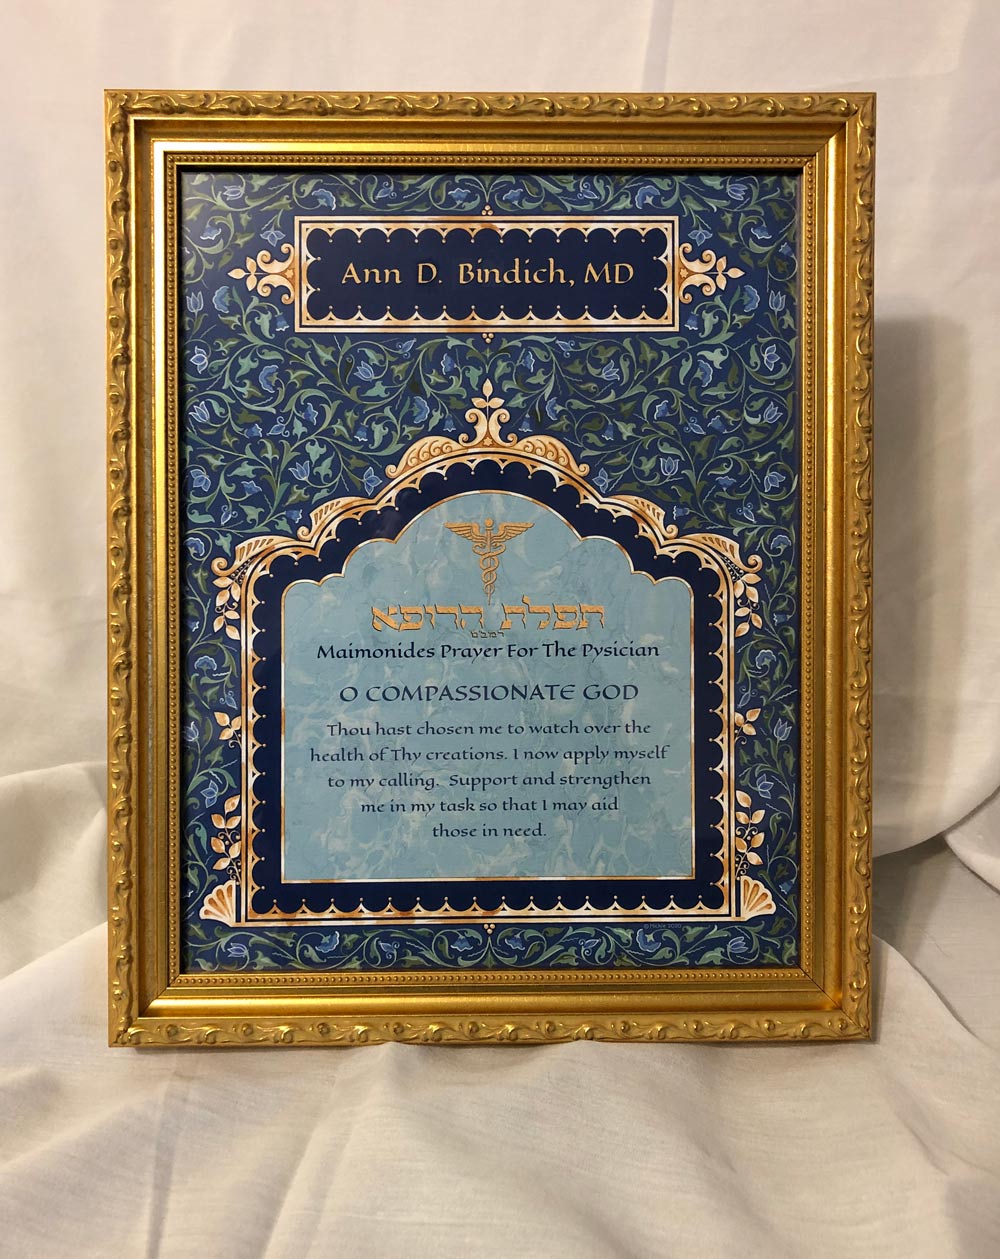 Ann D. Bindich, MD
תפלת הרופא
רמב״ם
Maimonides Prayer For The Pysician
O COMPASSIONATE GOD
Thou hast chosen me to watch over the
health of Thy creations. I now apply myself
to my calling. Support and strengthen
me in my task so that I may aid
those in need.
© Mickie 2020